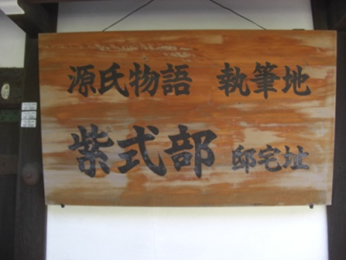 源氏物語　執筆地
紫式部 邸宅址